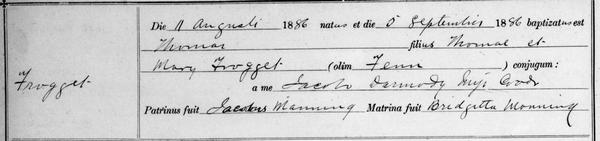 Die 11 Augusti 1886 natus et die 5 Septembris 1886 baptizatus est
Thomas filius Thomae et
Frogget
Mary Frogget (olim Fenn) conjugum:
a me Jacobo Darmody
Patrinus fuit Jacobus Manning Matrina fuit Bridgetta Manning